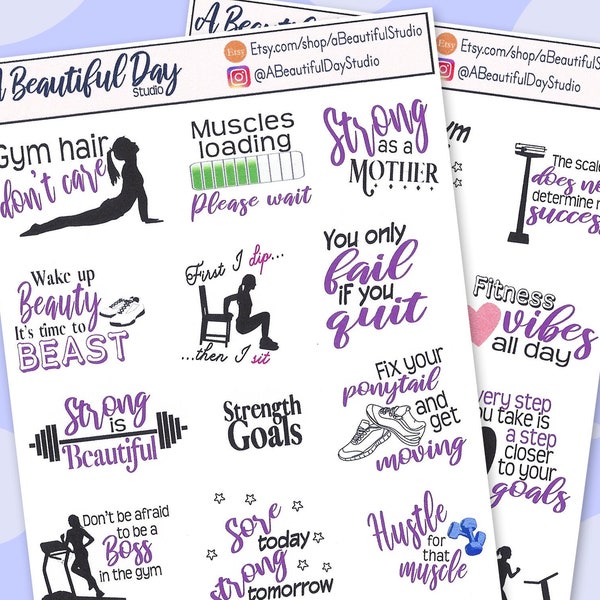 A Beautiful Day
Studio
Etsy
Etsy.com/shop/aBeautifulStudio
@ABeautifulDayStudio
Gym hair
don't care
Muscles
loading
Please wait
Strong
as a
MOTHER
Wake up
Beauty
It's time to
BEAST
First I dip...
...then I sit
You only
fail
if you
quit
Strong
is
Beautiful
Strength
Goals
Fix your
ponytail
and
get
moving
Don't be afraid
to be a
Boss
in the gym
Sore
today
strong
tomorrow
Hustle
for
that
muscle
A Beautiful
Etsy
Etsy.com/shop/aBeautifulStudio
@ABeautifulDayStudio
The scale
does no
determine
success
Fitness
vibes
all day
very step
you take is
a step
closer
to your
goals